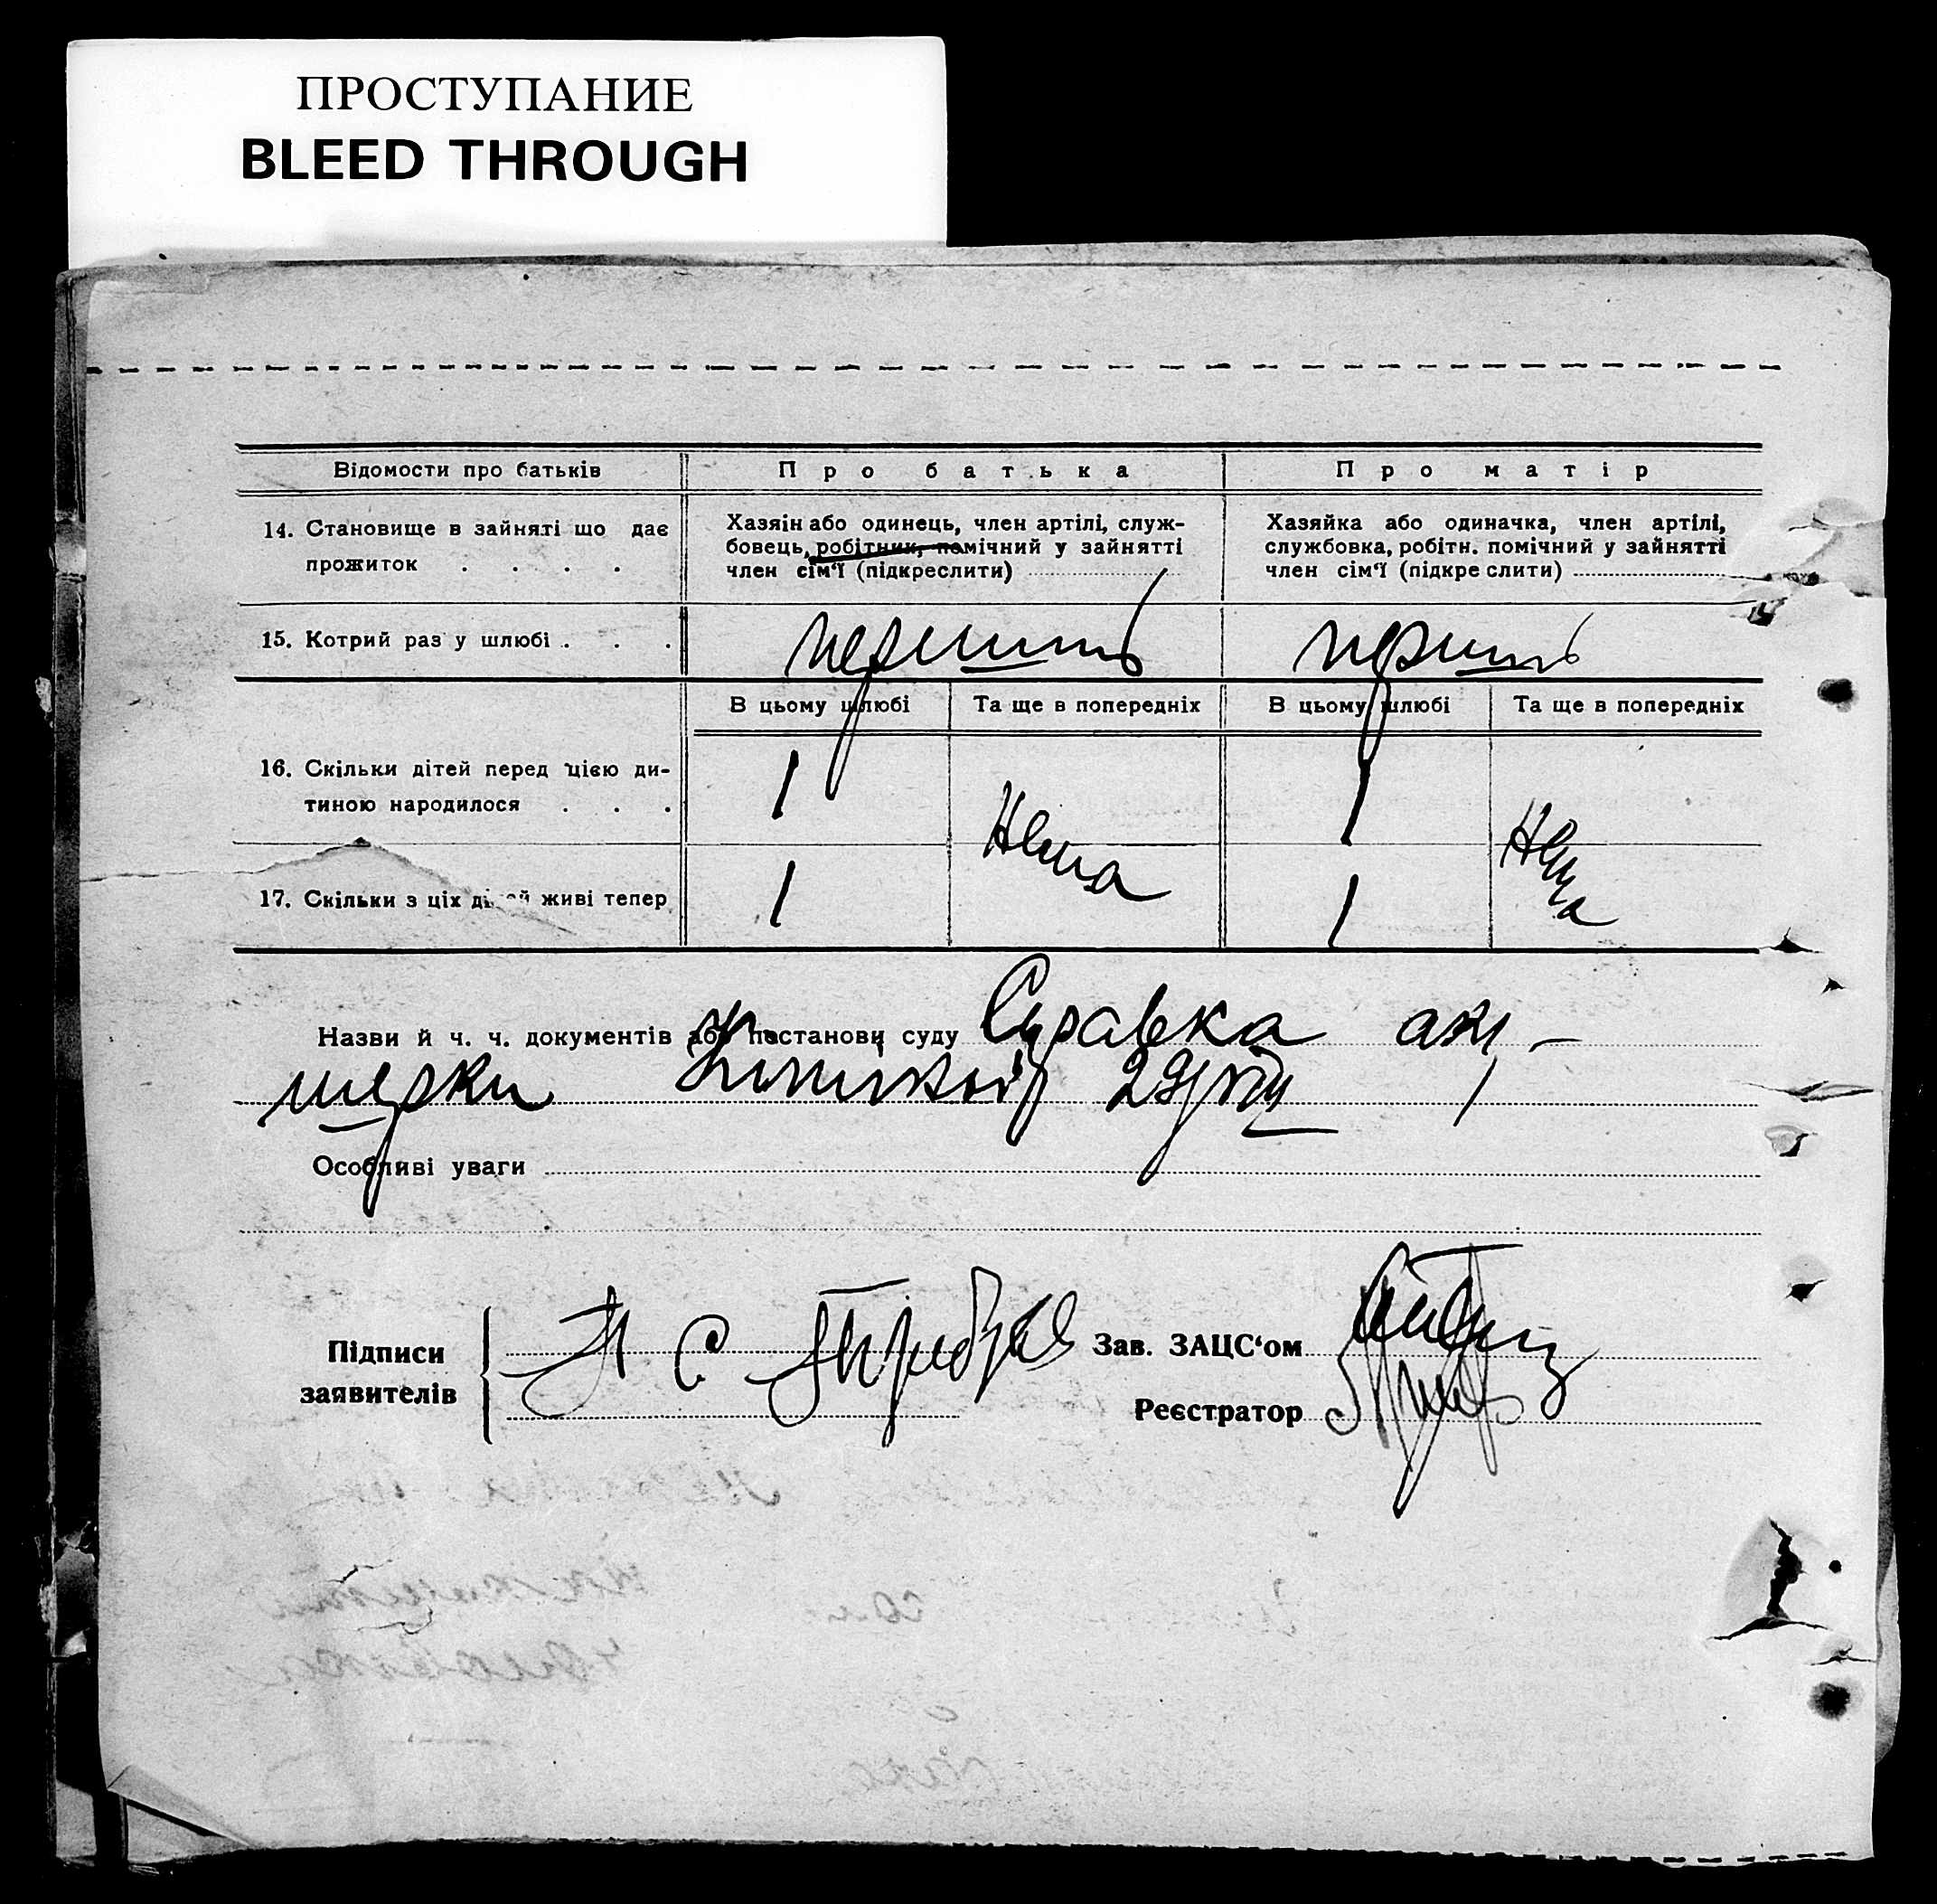 ПРОСТУПАНИЕ
BLEED THROUGH
Відомости про батьків
Про батька
Про матір
14. Становище в зайняті що дає
прожиток . . . .
Хазяін або одинець, член артілі, служ-
бовець, робітник, помічний у зайнятті
член сім'ї (підкреслити)
Хазяйка або одиначка, член артілі,
службовка, робітн. помічний у зайнятті
член сім'ї (підкреслити)
15. Котрий раз у шлюбі . . .
перший
перший
В цьому шлюбі
Та ще в попередніх
В цьому шлюбі
Та ще в попередніх
16. Скільки дітей перед цією ди-
тиною народилося . . .
1
Нема
1
Нема
17. Скільки з ціх дітей живі тепер
1
1
Назви й ч. ч. документів або постанови суду Справка аку-
шерки
Особливі уваги
Підписи
заявителів
Зав. ЗАЦС'ом
Реєстратор